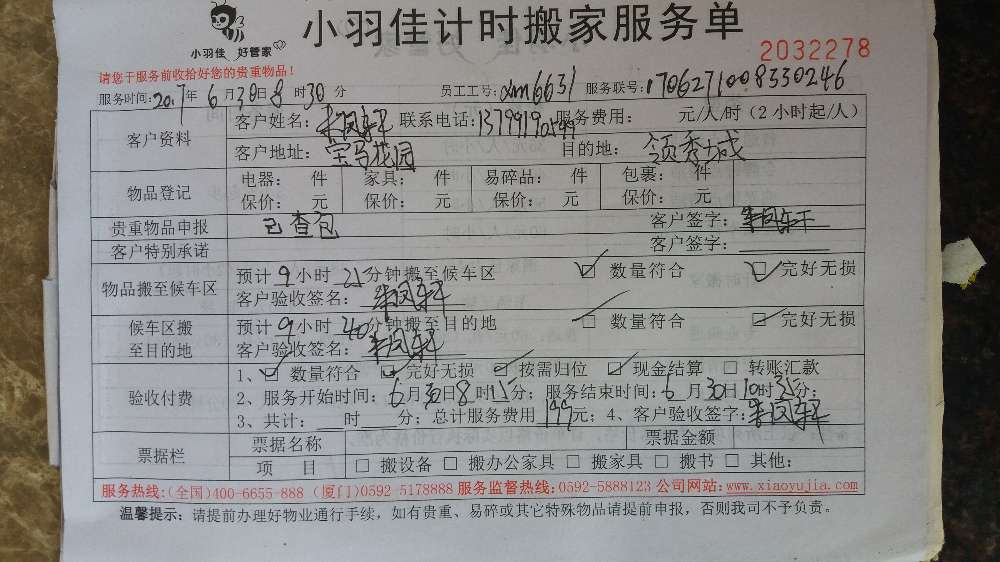 小羽佳 好管家
小羽佳计时搬家服务单
2032278
请您于服务前收拾好您的贵重物品!
服务时间:2017年6月30日8时30分 员工工号: xm6631 服务联号: 1706271008330246
客户资料
客户姓名: 联系电话: 服务费用: 元/人/时(2小时起/人)
客户地址: 宝马花园 目的地: 领秀城
物品登记
电器: 件 家具: 件 易碎品: 件 包裹: 件
保价: 元 保价: 元 保价: 元 保价: 元
贵重物品申报 已查包 客户签字:
客户特别承诺 客户签字:
物品搬至候车区
预计9小时21分钟搬至候车区 数量符合 完好无损
客户验收签名:
候车区搬至目的地
预计9小时40分钟搬至目的地 数量符合 完好无损
客户验收签名:
验收付费
1、数量符合 完好无损 按需归位 现金结算 转账汇款
2、服务开始时间:6月30日8时15分;服务结束时间:6月30日10时35分;
3、共计: 时 分;总计服务费用199元;4、客户验收签字:
票据栏
票据名称 票据金额
项 目 搬设备 搬办公家具 搬家具 搬书 其他:
服务热线:(全国)400-6655-888 (厦门)0592-5178888 服务监督热线:0592-5888123 公司网站:www.xiaoyujia.com
温馨提示:请提前办理好物业通行手续,如有贵重、易碎或其它特殊物品请提前申报,否则我司不予负责。